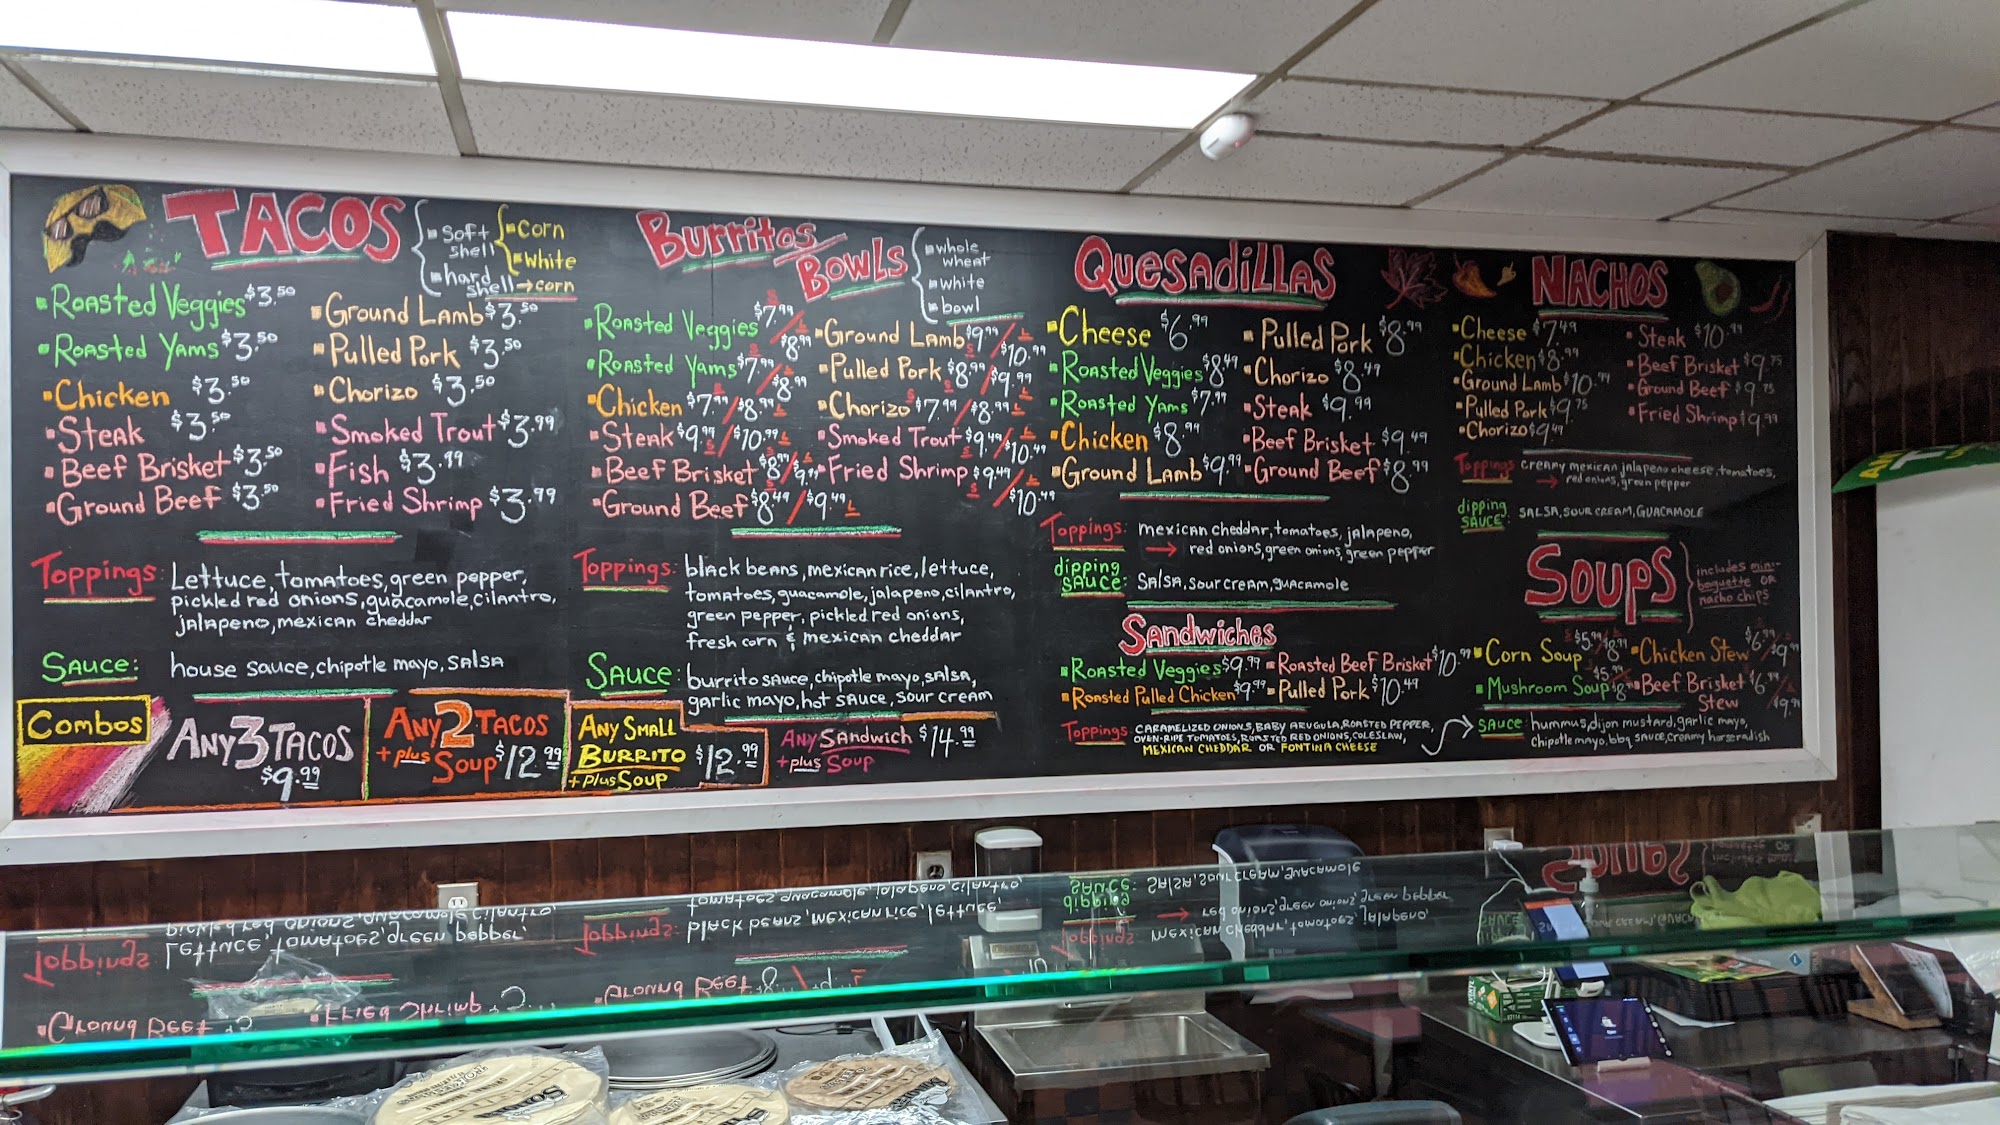 TACOS
soft shell
corn
white
hard shell → corn
Roasted Veggies $3.50
Roasted Yams $3.50
Chicken $3.50
Steak $3.50
Beef Brisket $3.50
Ground Beef $3.50
Ground Lamb $3.50
Pulled Pork $3.50
Chorizo $3.50
Smoked Trout $3.99
Fish $3.99
Fried Shrimp $3.99
Toppings: Lettuce, tomatoes, green pepper,
pickled red onions, guacamole, cilantro,
jalapeno, mexican cheddar
Sauce: house sauce, chipotle mayo, salsa
Combos
Any 3 Tacos
$9.99
Any 2 Tacos
+ plus Soup $12.99
Any Small
Burrito $12.99
+ plus Soup
Any Sandwich $14.99
+ plus Soup
Burritos/
Bowls
whole wheat
white
bowl
Roasted Veggies $7.99 / $8.99
Roasted Yams $7.99 / $8.99
Chicken $7.99 / $8.99 L
Steak $9.99 / $10.99 L
Beef Brisket $8.49 / $9.49
Ground Beef $8.49 / $9.49 L
Ground Lamb $9.99 / $10.99 L
Pulled Pork $8.99 / $9.99 L
Chorizo $7.99 / $8.99 L
Smoked Trout $9.49 / $10.49 L
Fried Shrimp $9.49 / $10.49 L
Toppings: black beans, mexican rice, lettuce,
tomatoes, guacamole, jalapeno, cilantro,
green pepper, pickled red onions,
fresh corn & mexican cheddar
Sauce: burrito sauce, chipotle mayo, salsa,
garlic mayo, hot sauce, sour cream
Quesadillas
Cheese $6.99
Roasted Veggies $8.49
Roasted Yams $7.99
Chicken $8.99
Ground Lamb $9.99
Pulled Pork $8.99
Chorizo $8.49
Steak $9.99
Beef Brisket $9.49
Ground Beef $8.99
Toppings: mexican cheddar, tomatoes, jalapeno,
→ red onions, green onions, green pepper
dipping sauce: Salsa, sour cream, guacamole
Sandwiches
Roasted Veggies $9.99
Roasted Pulled Chicken $9.99
Roasted Beef Brisket $10.99
Pulled Pork $10.49
Toppings: CARAMELIZED ONIONS, BABY ARUGULA, ROASTED PEPPER,
OVEN-RIPE TOMATOES, ROASTED RED ONIONS, COLESLAW,
MEXICAN CHEDDAR OR FONTINA CHEESE
Sauce: hummus, dijon mustard, garlic mayo,
chipotle mayo, bbq sauce, creamy horseradish
NACHOS
Cheese $7.49
Chicken $8.99
Ground Lamb $10.99
Pulled Pork $9.75
Chorizo $9.49
Steak $10.99
Beef Brisket $9.75
Ground Beef $9.75
Fried Shrimp $9.99
Toppings creamy mexican jalapeno cheese, tomatoes,
→ red onions, green pepper
dipping sauce: SALSA, SOUR CREAM, GUACAMOLE
Soups
includes mini-
baguette OR
nacho chips
Corn Soup $5.99 / $8.99
Mushroom Soup $5.99 / $8.99
Chicken Stew $6.99 / $9.99
Beef Brisket Stew $6.99 / $9.99